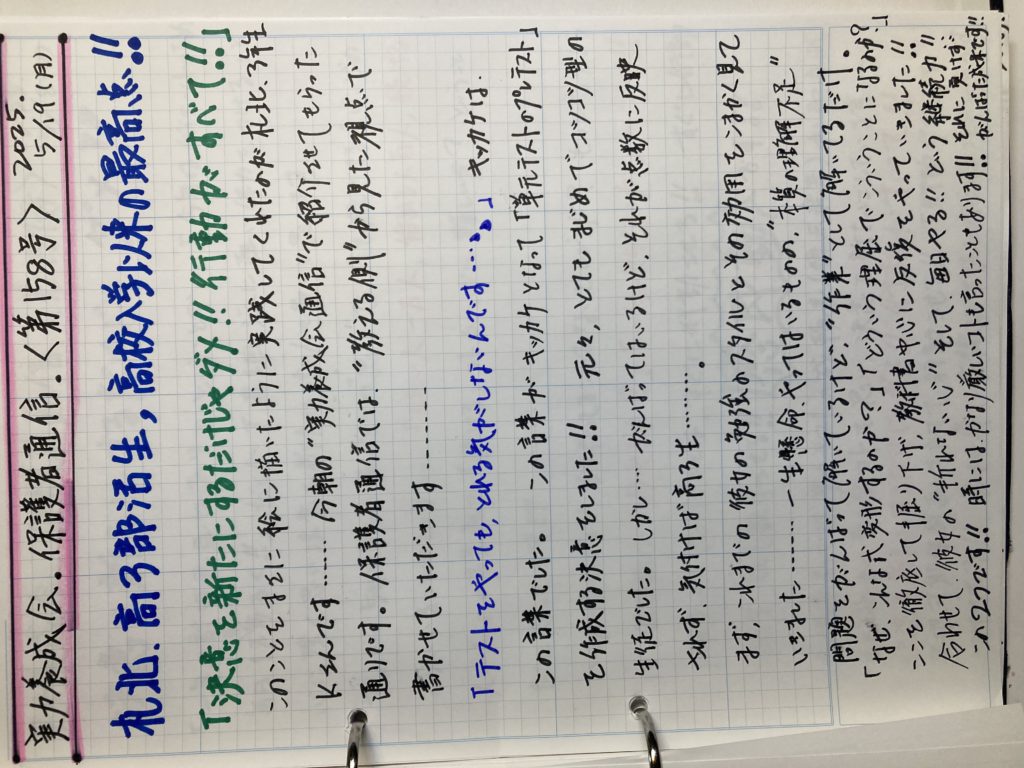 実力養成会.保護者通信.〈第158号〉 2025. 5/19(月)
札北.高3部活生,高校入学以来の最高点!!
「決意を新たにするだけじゃダメ!!行動がすべて!!」
このことをまさに絵に描いたように実践してくれたのが札北、3年生
Kさんです……今朝の"実力養成会通信"で紹介させてもらった
通りです。保護者通信では、"教える側"から見た視点で
書かせていただきます………
「テストをやっても、とれる気がしないんです…。」キッカケは、
この言葉でした。この言葉がキッカケとなって「単元テストのプレテスト」
を作成する決意をしました!! 元々,とてもまじめでコツコツ型の
生徒でした。しかし…がんばってはいるけど、それが点数に反映
されず、気付けば高3も……。
まず,これまでの彼女の勉強のスタイルとその効用をこまかく見て
いきました……一生懸命、やってはいるものの,"本質の理解不足"
問題をがんばって解いているけど,"作業"として解いてるだけ。
「なぜ、こんな式変形するのか?」「どういう理屈でこういうことになるのか?」
ここを徹底して掘り下げ,教科書中心に反復をやっていきました!!
合わせて,彼女の"折れない心"そして、毎日やる!!という継続力!!
この2つです!! 時には、かなり厳しいコトも言ったこともあります!! それに負けず、
がんばった成果です!!